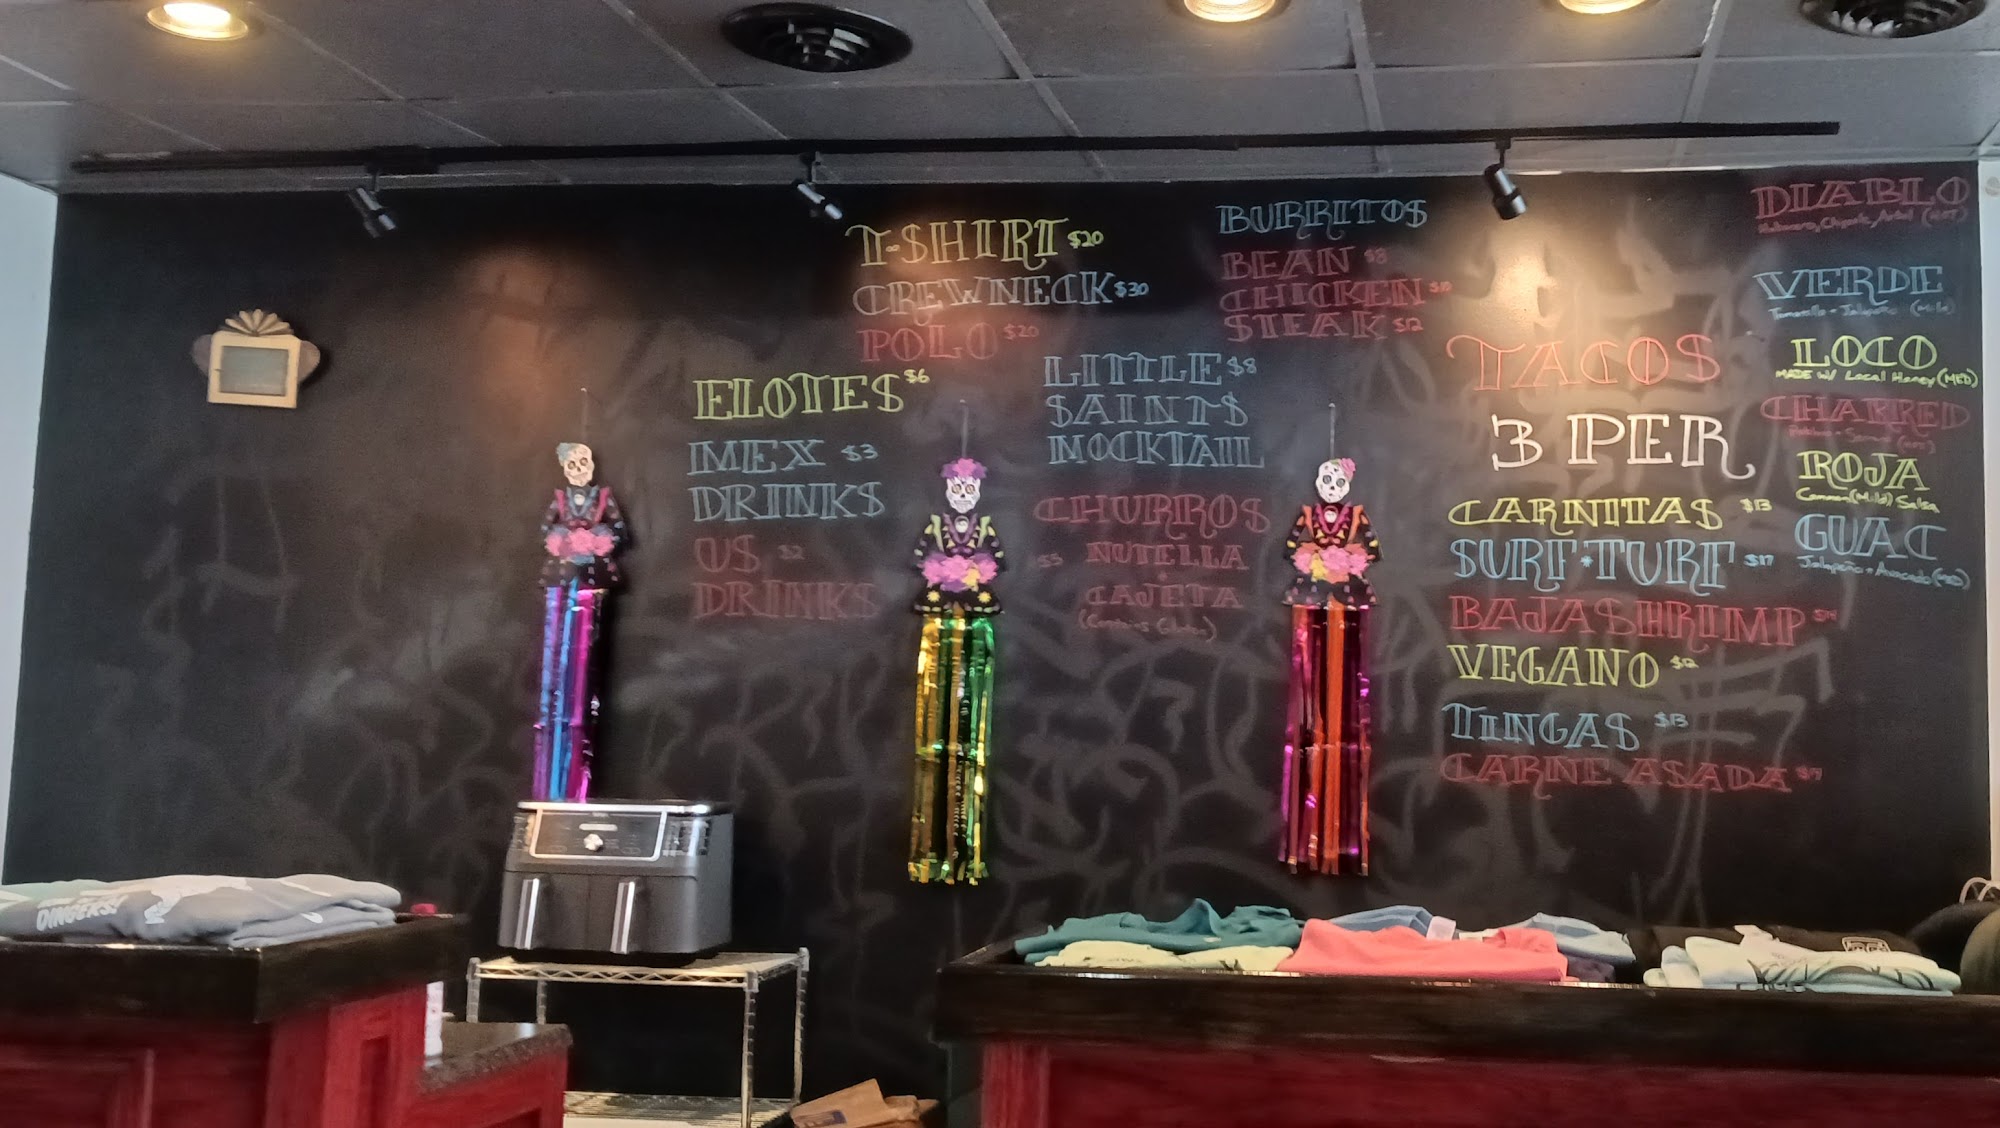 T-SHIRT $20
CREWNECK $30
POLO $20
ELOTES $6
MEX $3
DRINKS
US $2
DRINKS
LITTLE $8
SAINTS
MOCKTAIL
CHURROS
$5 NUTELLA
CAJETA
(Contains Gluten)
BURRITOS
BEAN $8
CHICKEN $10
STEAK $12
TACOS
3 PER
CARNITAS $13
SURF*TURF $17
BAJA SHRIMP $14
VEGANO $12
TINGAS $13
CARNE ASADA $17
DIABLO
Habanero, Chipotle, Arbol (HOT)
VERDE
Tomatillo + Jalapeño (Mild)
LOCO
MADE W/ Local Honey (MED)
CHARRED
(HOT)
ROJA
Common (Mild) Salsa
GUAC
Jalapeño + Avocado (MED)
DINGERS!